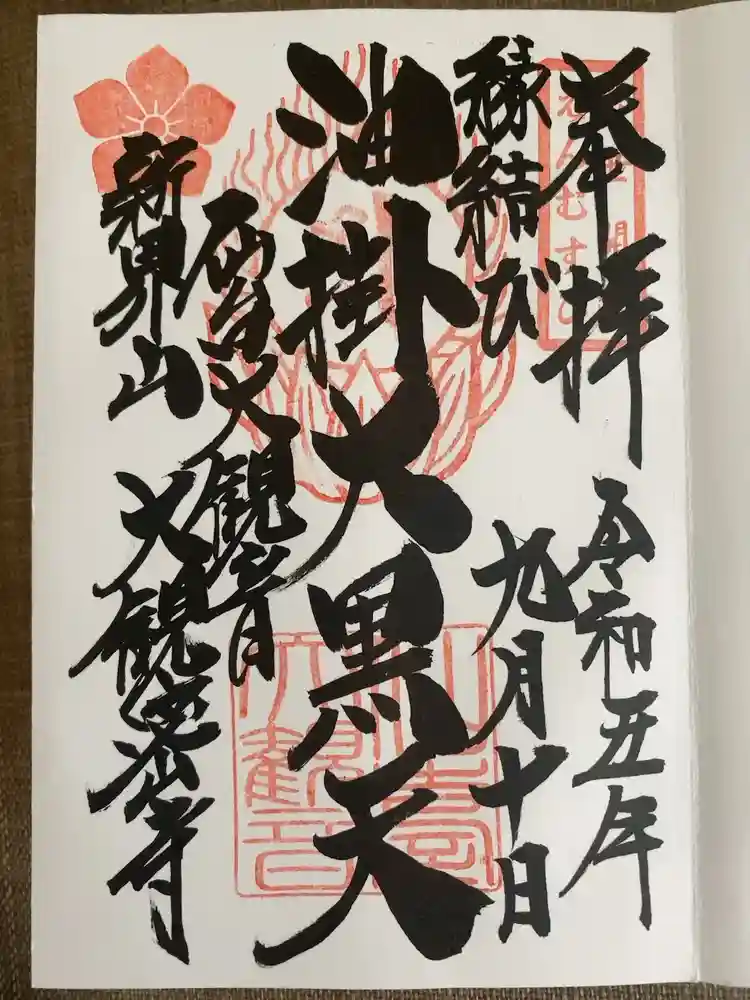 奉拝
令和五年
九月十日
縁結び
油掛大黒天
仙台大観音
新界山
大観密寺
えんむすび
仙臺
大観音